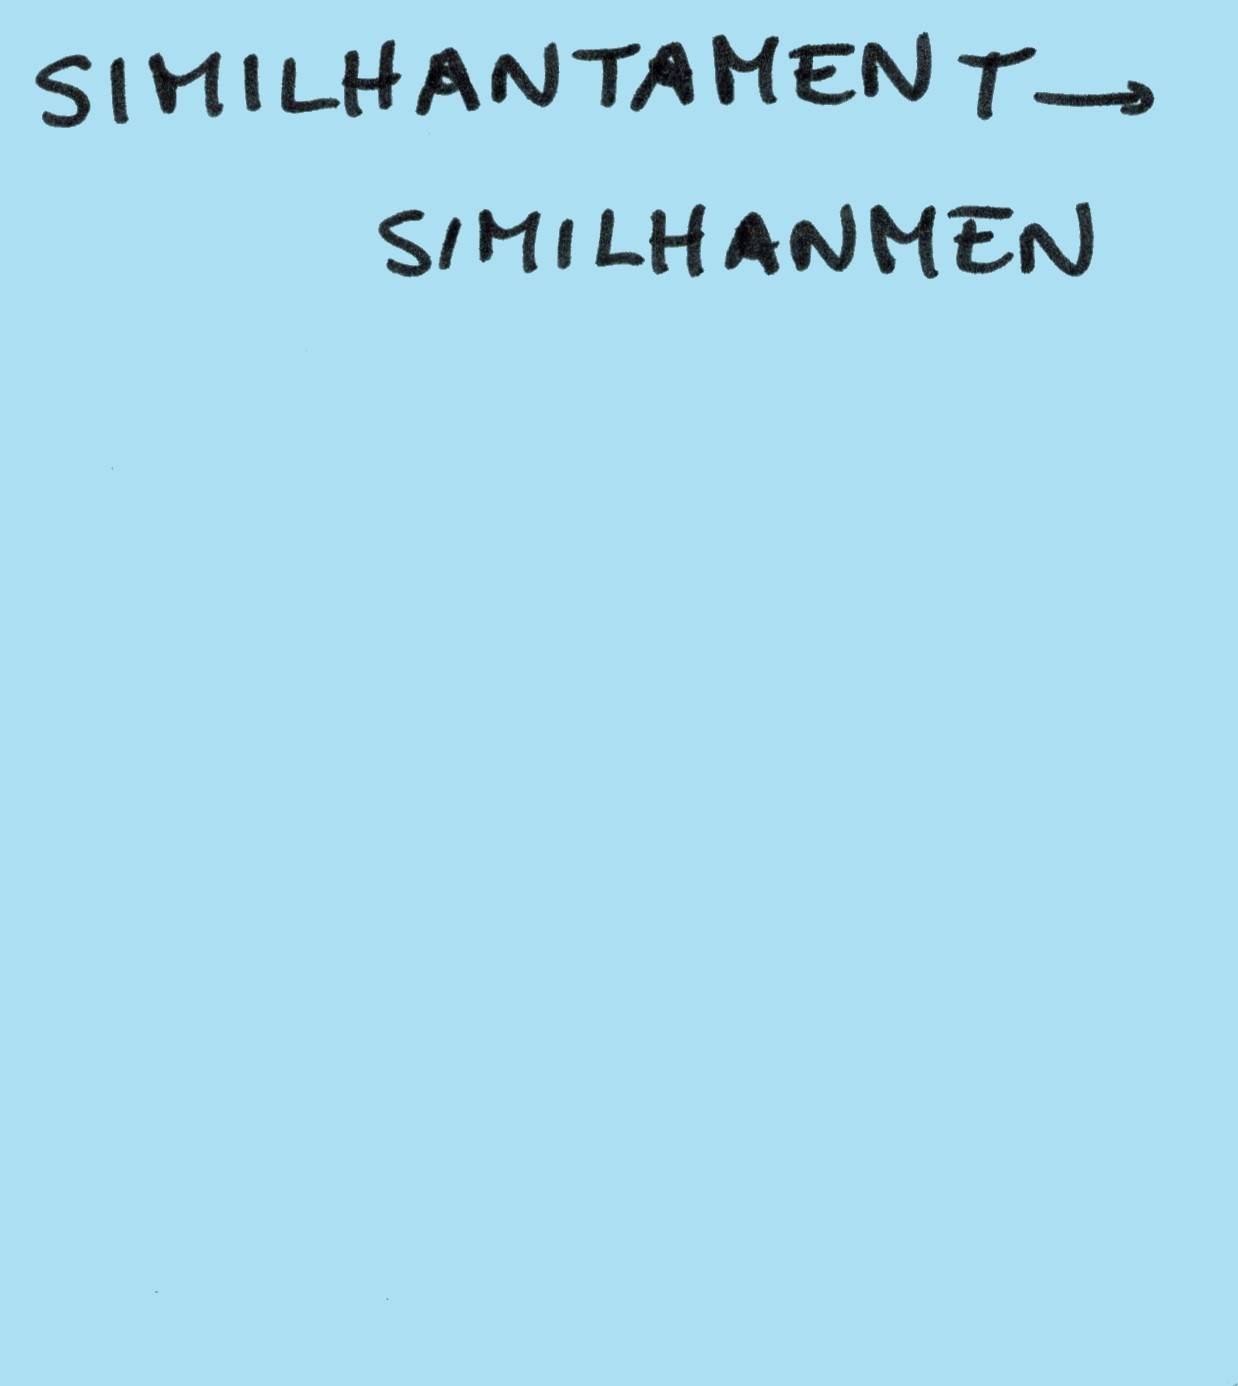 SIMILHANTAMENT →
SIMILHANMEN